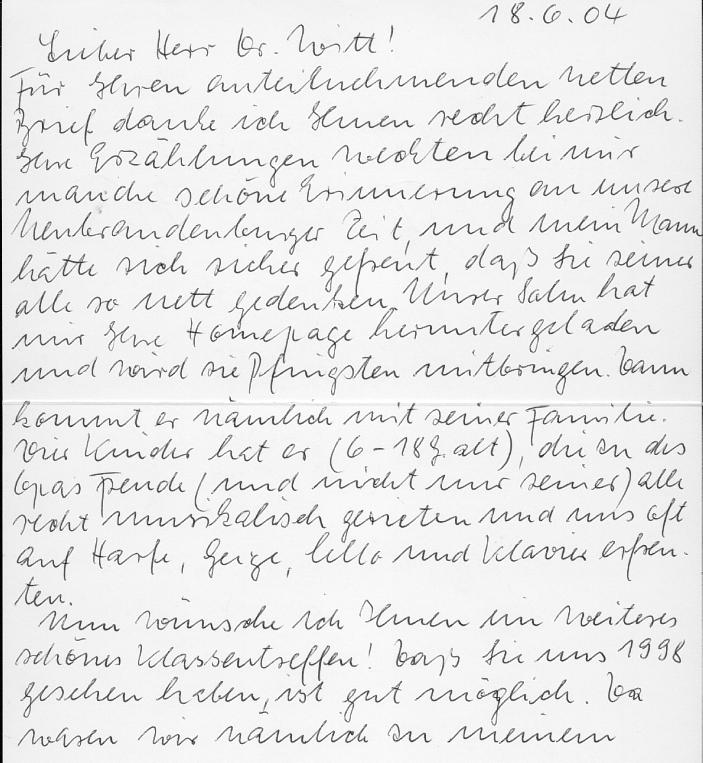 18.6.04
Lieber Herr Dr. Witt!
Für Ihren anteilnehmenden netten
Brief danke ich Ihnen recht herzlich.
Ihre Erzählungen weckten bei mir
manche schöne Erinnerung an unsere
Neubrandenburger Zeit, und mein Mann
hätte sich sicher gefreut, daß Sie seiner
alle so nett gedenken. Unser Sohn hat
mir Ihre Homepage heruntergeladen
und wird sie Pfingsten mitbringen. Dann
kommt er nämlich mit seiner Familie.
Vier Kinder hat er (6-18 J. alt), die zu des
Opas Freude (und nicht nur seiner) alle
recht musikalisch gerieten und uns oft
auf Harfe, Geige, Cello und Klavier erfreu-
ten.
Nun wünsche ich Ihnen ein weiteres
schönes Klassentreffen! Daß Sie uns 1998
gesehen haben, ist gut möglich. Da
waren wir nämlich zu meinem